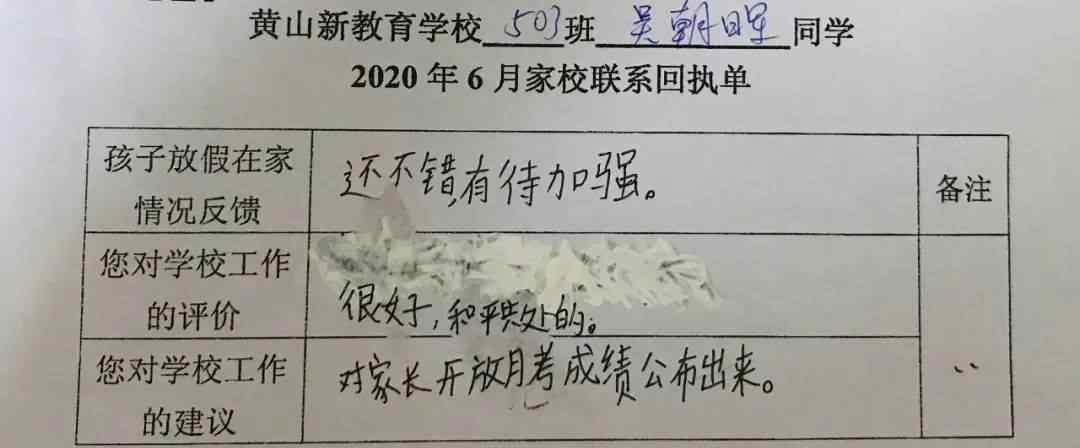 黄山新教育学校503班吴朝日星同学
2020年6月家校联系回执单
孩子放假在家
情况反馈
还不错,有待加强。
备注
您对学校工作
的评价
很好,和平共处的。
您对学校工作
的建议
对家长开放月考成绩公布出来。